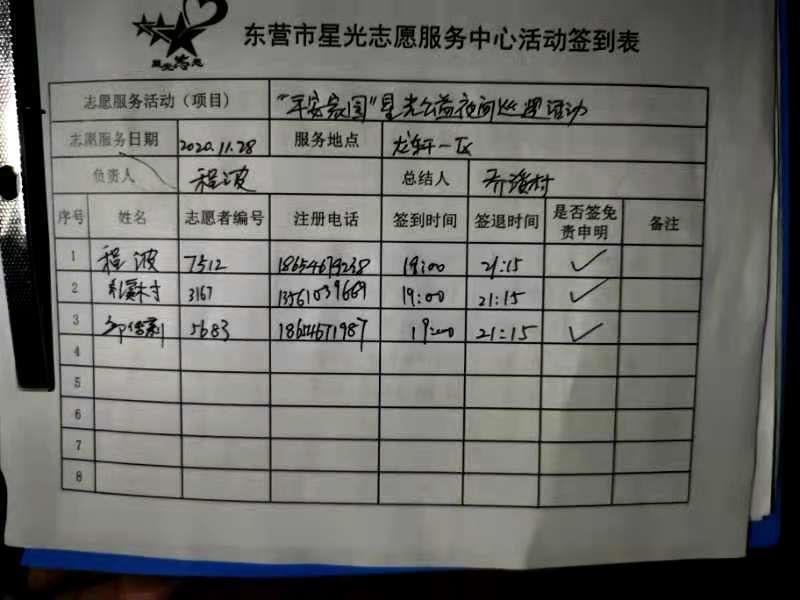 星光志愿
东营市星光志愿服务中心活动签到表
志愿服务活动（项目） "平安家园"星光公益夜间巡逻活动
志愿服务日期 2020.11.28 服务地点 龙轩一区
负责人 程波 总结人
序号 姓名 志愿者编号 注册电话 签到时间 签退时间 是否签免责申明 备注
1 程波 7512 18654679238 19:00 21:15 ✓
2 3167 13561039669 19:00 21:15 ✓
3 5683 18654671987 19:00 21:15 ✓
4
5
6
7
8